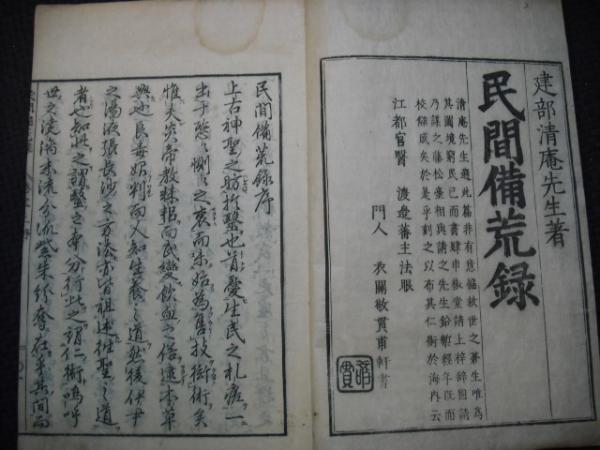 建部清庵先生著
民間備荒録
清庵先生選此篇非有意恤救世之蒼生唯為
其國境窮民已而書肆申椒堂請上梓辞固請
乃謀之藤松臺相與請之先生鉛槧經年既而
校讎成矣於是乎刻之以布其仁術於海内云
江都官醫 渡邉蕃主法眼
門人 衣關敬貫甫軒書
民間備荒録序
上古神聖之肪於毉也首憂生民之札瘥一
出于愁惻之哀而未始為售技衒術矣
惟夫炎帝教稼穡而民變飲血之俗逮本草
興也良毒始判而人知生養之道然後伊尹
之湯液張長沙之方法亦皆祖述往聖之道
者也如此之謂毉之本分術此之謂仁術嗚呼
世之澆漓末流分流紫朱紛奪在乎其間而